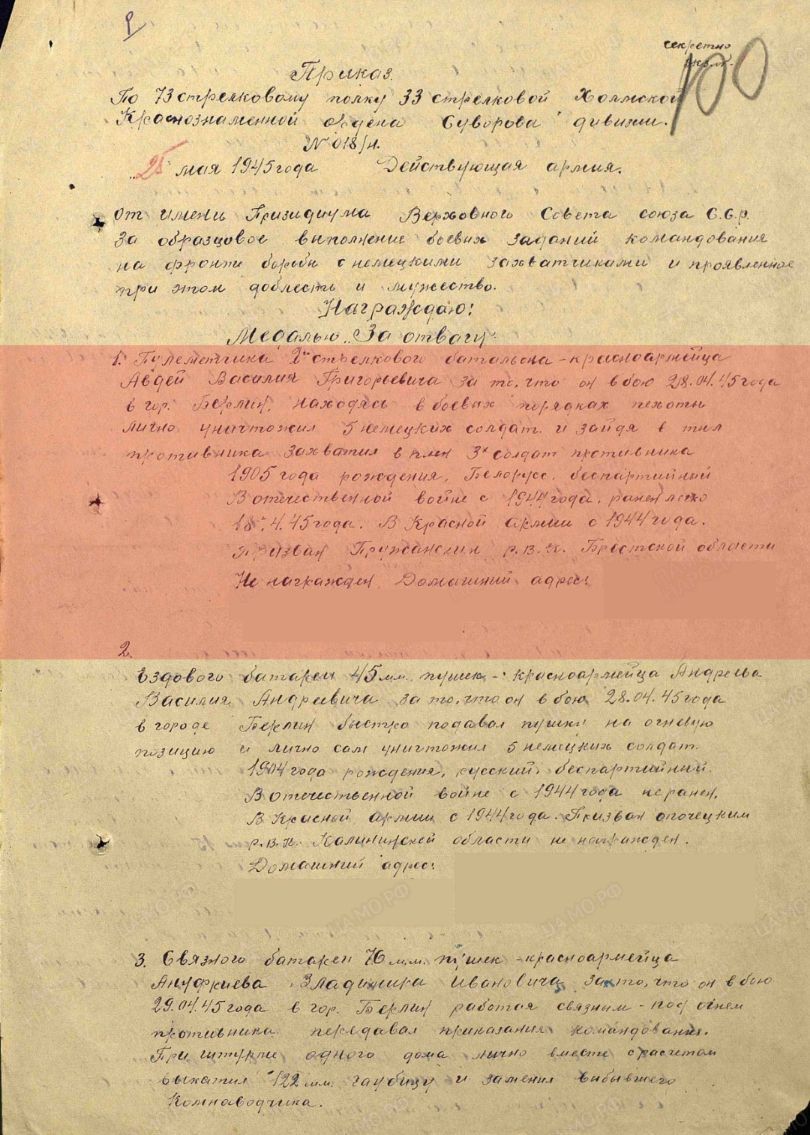 секретно
100
Приказ
По 73 стрелковому полку 33 стрелковой Холмской
Краснознаменной ордена Суворова дивизии.
№ 018/н.
25 мая 1945 года Действующая армия.
От имени Призидиума Верховного Совета союза С.С.Р.
За образцовое выполнение боевых заданий командования
на фронте борьбы с немецкими захватчиками и проявленное
при этом доблесть и мужество.
Награждаю:
Медалью „За отвагу“
1. Пулеметчика 2го стрелкового батальона - красноармейца
Авдей Василия Григорьевича за то, что он в бою 28.04.45 года
в гор. Берлин, находясь в боевых порядках пехоты
лично уничтожил 5 немецких солдат и зайдя в тыл
противника захватил в плен 3х солдат противника
1905 года рождения, Белорус, беспартийный
В отечественной войне с 1944 года, ранен легко
18.4.45 года. В Красной армии с 1944 года.
призван Пружанским р.в.к. Брестской области
Не награжден. Домашний адрес:
2.
Ездового батареи 45 мм. пушек - красноармейца Андреева
Василия Андреевича за то, что он в бою 28.04.45 года
в городе Берлин быстро подавал пушки на огневую
позицию и лично сам уничтожил 5 немецких солдат.
1904 года рождения, русский, беспартийный.
В отечественной войне с 1944 года не ранен.
В Красной армии с 1944 года. Призван опочецким
р.в.к. Калининской области не награжден.
Домашний адрес:
3. Связного батареи 76 мм. пушек - красноармейца
Ануфриева Ивановича за то, что он в бою
29.04.45 года в гор. Берлин работая связным - под огнем
противника передавал приказания командования.
При штурме одного дома лично вместе с расчетом
выкатил 122 мм. гаубицу и заменил выбывшего